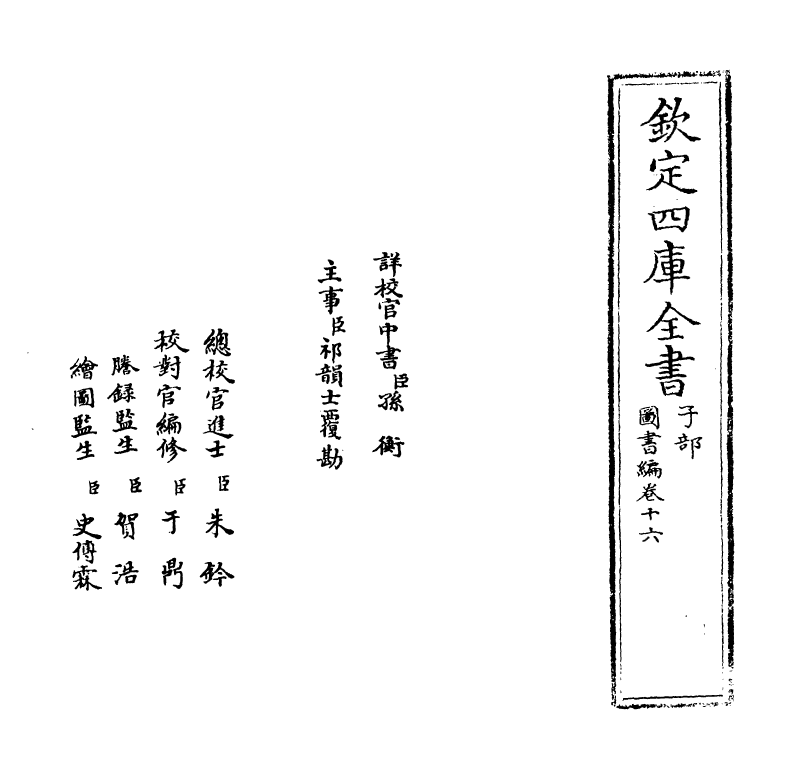 欽定四庫全書
子部
圖書編卷十六
詳校官中書臣孫衡
主事臣祁韻士覆勘
總校官進士臣朱鈐
校對官編修臣于鼎
謄錄監生臣賀浩
繪圖監生臣史傅霖